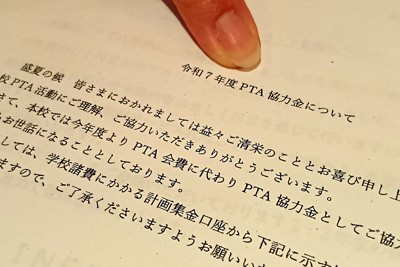 令和7年度 PTA 協力金について
盛夏の候 皆さまにおかれましては益々ご清栄のこととお喜び申し上
校 PTA 活動にご理解、ご協力いただきありがとうございます。
さて、本校では今年度より PTA 会費に代わり PTA 協力金としてご協力
お世話になることとしております。
しては、学校諸費にかかる計画集金口座から下記に示す
ますので、ご了承くださいますようお願いいた